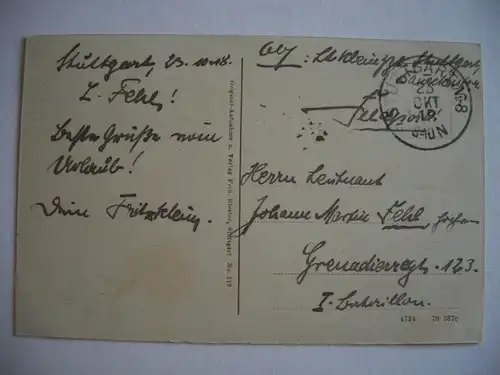 Stuttgart, 23.10.18.
L. Fehl!
Beste Grüße vom
Urlaub!
Dein Fritz Klein.
Original-Aufnahme u. Verlag Stuttgart No. 119
Abs: Lt Klein, Stuttgart,
Feldpost.
STUTTGART No 8
23
OKT
18
Herrn Leutnant
Johann Martin Fehl
Grenadierregt. 123.
I. Bataillon.
4734 79 387c